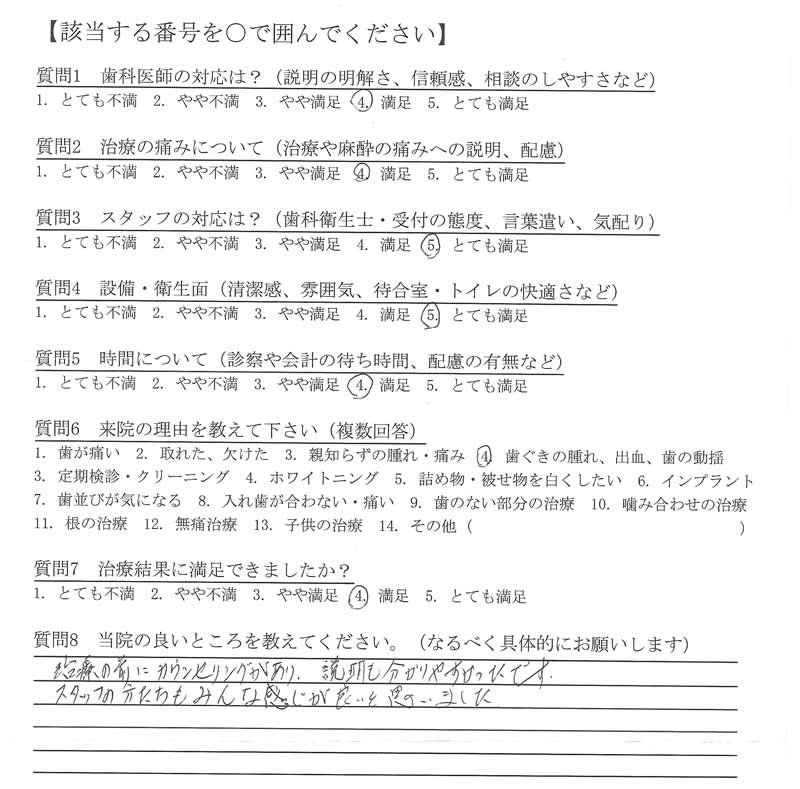 【該当する番号を〇で囲んでください】
質問1　歯科医師の対応は？（説明の明解さ、信頼感、相談のしやすさなど）
1. とても不満 2. やや不満 3. やや満足 4. 満足 5. とても満足
質問2　治療の痛みについて（治療や麻酔の痛みへの説明、配慮）
1. とても不満 2. やや不満 3. やや満足 4. 満足 5. とても満足
質問3　スタッフの対応は？（歯科衛生士・受付の態度、言葉遣い、気配り）
1. とても不満 2. やや不満 3. やや満足 4. 満足 5. とても満足
質問4　設備・衛生面（清潔感、雰囲気、待合室・トイレの快適さなど）
1. とても不満 2. やや不満 3. やや満足 4. 満足 5. とても満足
質問5　時間について（診察や会計の待ち時間、配慮の有無など）
1. とても不満 2. やや不満 3. やや満足 4. 満足 5. とても満足
質問6　来院の理由を教えて下さい（複数回答）
1. 歯が痛い 2. 取れた、欠けた 3. 親知らずの腫れ・痛み 4. 歯ぐきの腫れ、出血、歯の動揺
3. 定期検診・クリーニング 4. ホワイトニング 5. 詰め物・被せ物を白くしたい 6. インプラント
7. 歯並びが気になる 8. 入れ歯が合わない・痛い 9. 歯のない部分の治療 10. 噛み合わせの治療
11. 根の治療 12. 無痛治療 13. 子供の治療 14. その他（　　　）
質問7　治療結果に満足できましたか？
1. とても不満 2. やや不満 3. やや満足 4. 満足 5. とても満足
質問8　当院の良いところを教えてください。（なるべく具体的にお願いします）
治療の前にカウンセリングがあり、説明も分かりやすかったです。
スタッフの方たちもみんな感じが良いと思いました